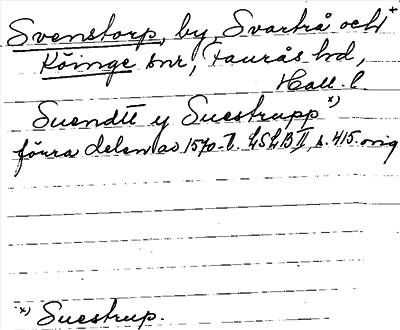 Svenstorp, by, Svartrå och +
Köinge snr, Faurås hd,
Hall. l.
Suendtt y Suestrupp x)
förra delen av 1570-t. HSH B II, s. 415. orig
x) Suestrup.